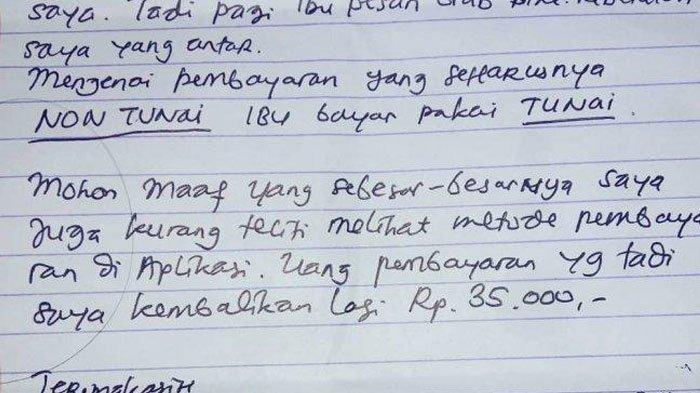 saya. Tadi pagi Ibu pesan
saya yang antar.
Mengenai pembayaran yang seharusnya
NON TUNAI IBU bayar pakai TUNAI.
Mohon maaf yang sebesar-besarnya saya
Juga kurang teliti melihat metode pembaya
ran di Aplikasi. Uang pembayaran yg tadi
saya kembalikan lagi Rp. 35.000,-
Terimakasih